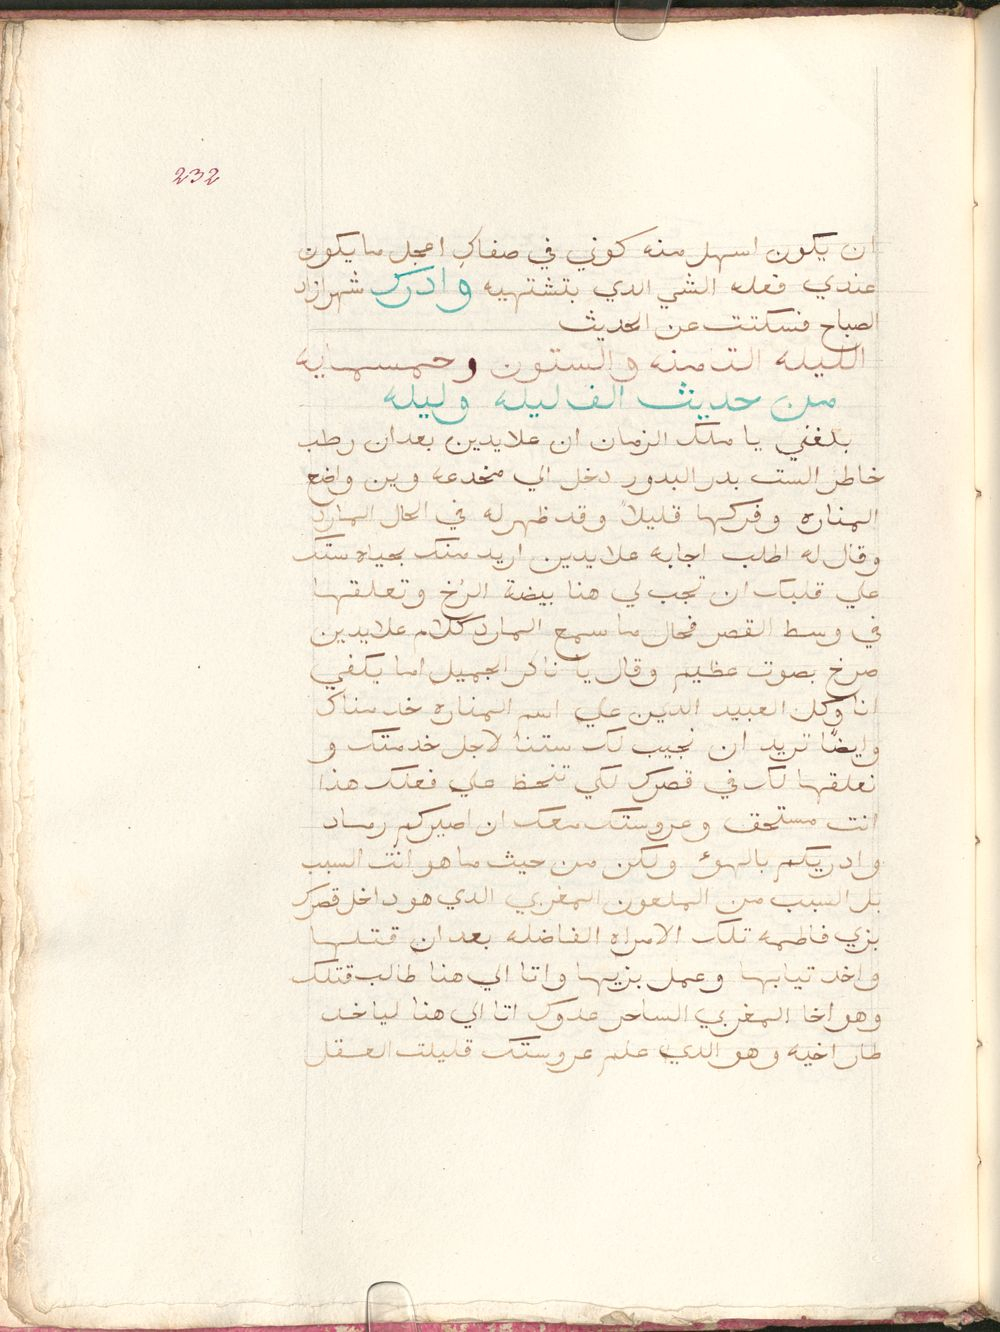 232
ان يكون اسهل منه كوني في صفاكِ اعجل ما يكون
عندي فعله الشي الدي بتشتهيه وادرك شهرازاد
الصباح فسكتت عن الحديث
الليله التامنه والستون وخمسمايه
من حديث الف ليله وليله
بلغني يا ملك الزمان ان علايدين بعدان رطب
خاطر الست بدر البدور دخل الي مخدعه وين واضع
المناره وفركها قليلاً وقد ظهر له في الحال المارد
وقال له اطلب اجابه علايدين اريد منك بحياه ستك
علي قلبك ان تجب لي هنا بيضة الرُخ وتعلقها
في وسط القصر فحال ما سمع المارد كلام علايدين
صرخ بصوت عظيم وقال يا ناكر الجميل اما يكفي
انا وكل العبيد الدين علي اسم المناره خدمناك
وايضًا تريد ان نجيب لك ستنا لاجل خدمتك و
نعلقها لك في قصرك لكي تنحظ علي فعلك هذا
انت مستحق وعروستك معك ان اصيركم رماد
وادريكم بالهوء ولكن من حيث ما هو انت السبب
بل السبب من الملعون المغربي الدي هو داخل قصرك
بزي فاطمه تلك الامراه الفاضله بعدان قتلها
واخد تيابها وعمل بزيها واتا الي هنا طالب قتلك
وهو اخا المغربي الساحر عدوك اتا الي هنا لياخد
طار اخيه وهو الدي علم عروستك قليلت العقل